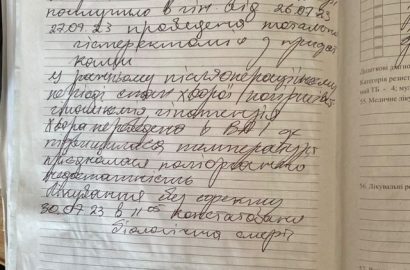 поступила в г/н від 26.07.23
27.07.23 проведена тотальна
гістеректомія з придат
ками
У ранньому післяопераційному
періоді стан хворої погіршився
гіпотензія
Хвора переведена в ВАІТ де
підвищилася температура
приєдналася поліорганна
недостатність
Лікування без ефекту
30.07.23 в 11⁰⁵ констатована
біологічна смерть
Додаткові дані по
Категорія резист
ний ТБ - 4; му
55. Медичне лік
56. Лікувальні р